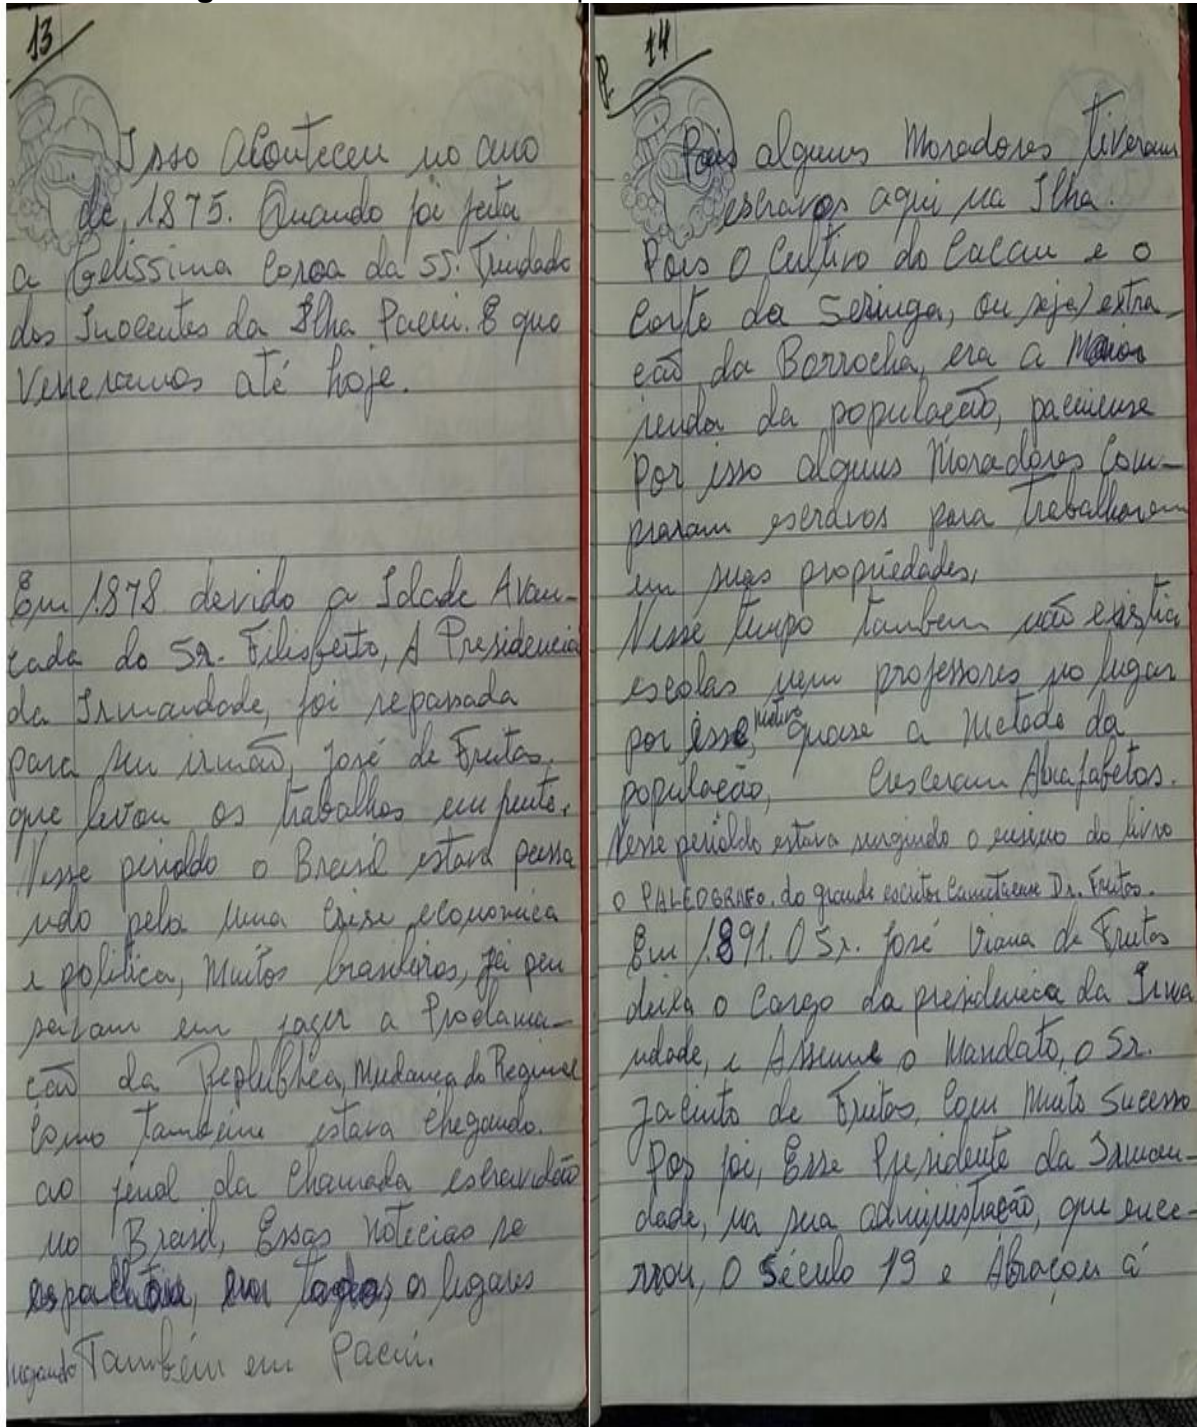 13
Isso Aconteceu no ano
de, 1875. Quando foi feita
a Gelissima Coroa da SS. Trindade
dos Inocentes da Ilha Pacui. E que
Veneramos até hoje.
Em 1.878 devido a Idade Avan-
cada do Sr. Filisberto, A Presidencia
da Irmandade, foi repassada
para seu irmão, José de Freitas.
que levou os trabalhos em frente.
Nesse perioldo o Brasil estava passa
ndo pela uma Crise economica
e politica, Muitos brasileiros, já pen
savam em fazer a Proclama-
ção da Replublica, Mudança do Regime
Como também estava Chegando.
ao final da Chamada escravidão
no Brasil, Essas Noticias se
os lugares
Também em Pacui.
P. 14
Pois alguns Moradores tiveram
escravos aqui na Ilha.
Pois O Cultivo do Cacau e o
Corte da Seringa, ou seja, extra-
ção da Borrocha, era a Maior
renda da população, pacuiense
Por isso alguns Moradores Com-
praram escravos para trabalharem
em suas propriedades,
Nesse tempo também não existia
escolas nem professores no lugar
por esse, motivo quase a Metade da
população, Cresceram Anafabetos.
Nesse perioldo estava surgindo o ensino do livro
O PALEOGRAFO. do grande escritor Cametaense Dr. Freitas.
Em 1.891. O Sr. José Viana de Freitas
deixa o Cargo da presidencia da Irma
ndade, e Assume o Mandato, o Sr.
Jacinto de Freitas, Com Muito Sucesso
Pos foi, Esse Presidente da Irman-
dade, na sua administração, que ence-
rrou, O Século 19 e Abraçou á